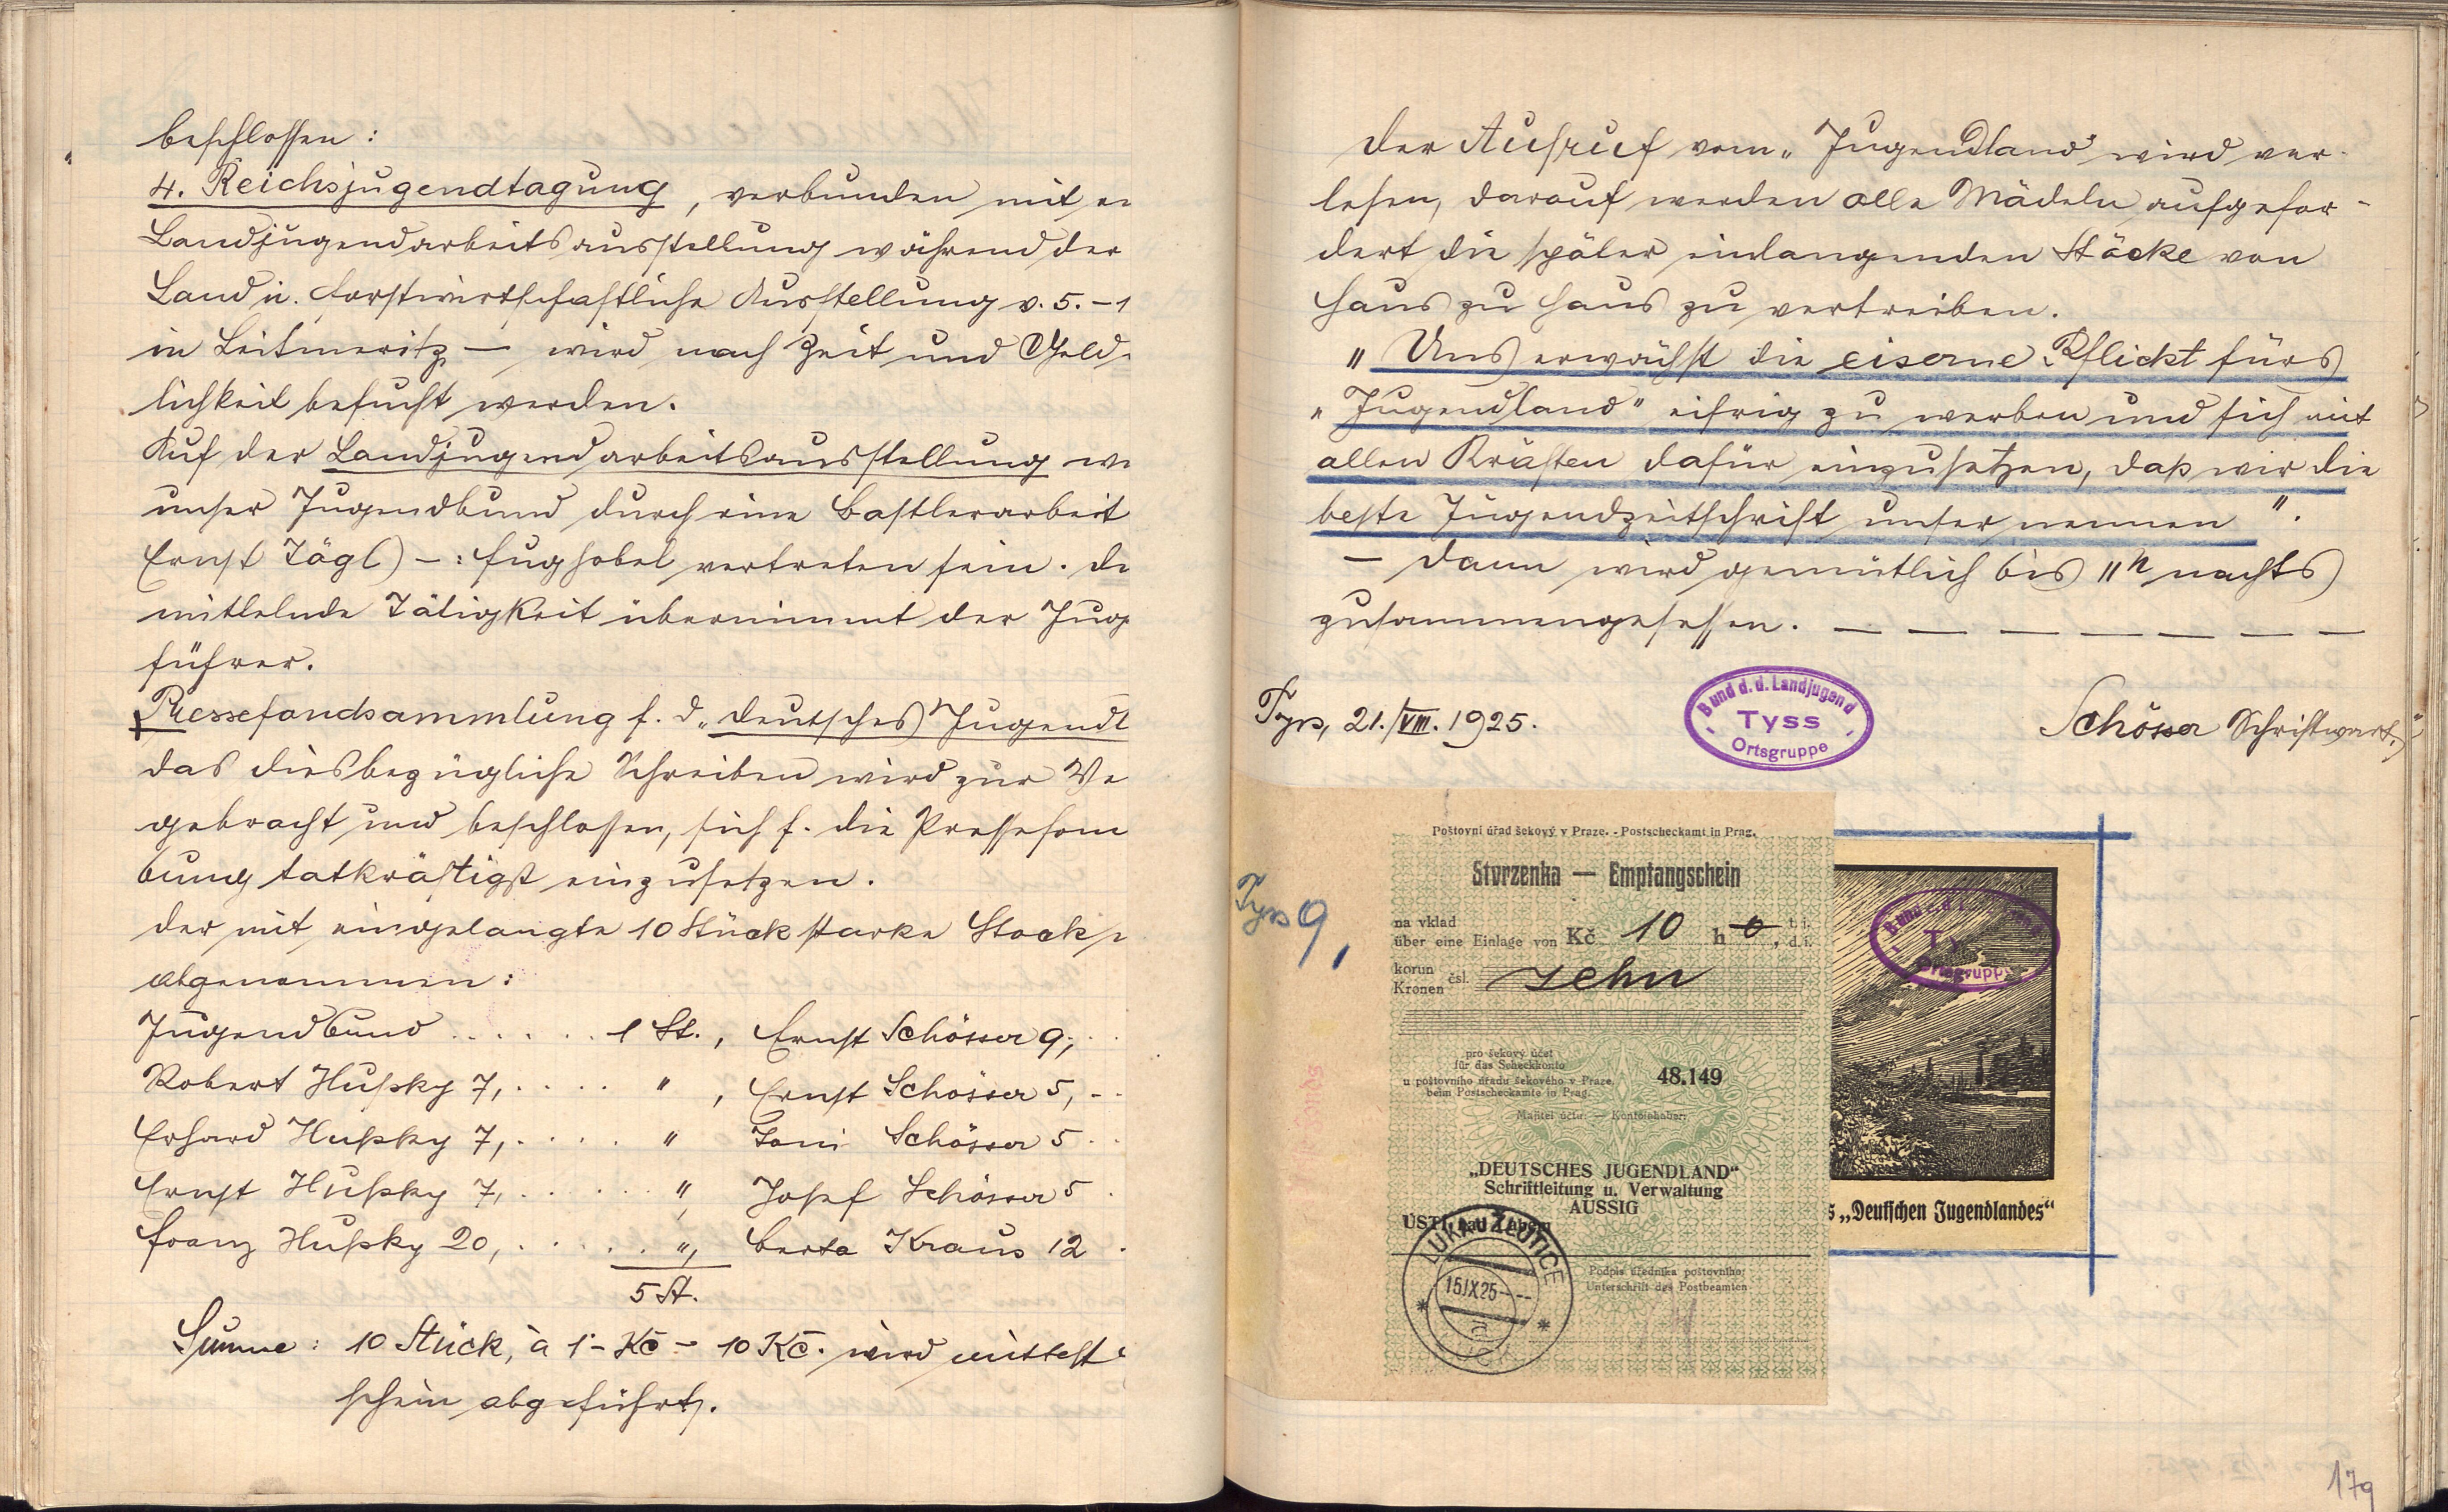 beschlossen:
4. Reichsjugendtagung, verbunden mit
Landjugendarbeitsausstellung während der
Land u. forstwirtschaftliche Ausstellung v. 5. – 1
in Leitmeritz – wird nach Zeit und Geld-
lichkeit besucht werden.
Auf der Landjugendarbeitsausstellung
unser Jugendbund durch eine Bastlerarbeit
Ernst Tögl) –: Fughobel vertreten sein.
mittelnde Tätigkeit übernimmt der Jug
führer.
Pressefondsammlung f. d. „Deutsches Jugendl
das diesbezügliche Schreiben wird zur Ve
gebracht und beschlossen, sich f. die Pressefon
bung tatkräftigst einzusetzen.
der mit eingelangte 10 Stück starke Stock
abgenommen:
Jugendbund . . . . . . 1 St., Ernst Schösser 9,
Robert Hußky 7, . . . . " , Ernst Schösser 5, -
Erhard Hußky 7, . . . . " Toni Schösser 5
Ernst Hußky 7, . . . . . ", Josef Schösser 5
Franz Hußky 20, . . . . . ", Berta Kraus 12
5 St.
Summe: 10 Stück, à 1·- Kč = 10 Kč. wird mittelst
schein abgeführt.
Der Aufruf vom „Jugendland" wird ver-
lesen, darauf werden alle Mädeln aufgefor-
dert die später einlangenden Stöcke von
Haus zu Haus zu vertreiben.
„Uns erwächst die eiserne Pflicht fürs
„Jugendland" eifrig zu werben und sich mit
allen Kräften dafür einzusetzen, daß wir die
beste Jugendzeitschrift unser nennen".
– Dann wird gemütlich bis 11h nachts
zusammengesessen. – – – – – – –
Tyss, 21./VIII. 1925.
Bund d. d. Landjugend
Tyss
Ortsgruppe
Schösser Schriftwart.
Tyss 9,
Poštovní úřad šekový v Praze. - Postscheckamt in Prag.
Stvrzenka — Empfangschein
na vklad
über eine Einlage von Kč 10 h 0, t. i. d. i.
korun
Kronen čsl. zehn
pro šekový účet
für das Scheckkonto
u poštovního úřadu šekového v Praze. 48.149
beim Postscheckamte in Prag.
Majitel účtu: — Kontoinhaber:
„DEUTSCHES JUGENDLAND"
Schriftleitung u. Verwaltung
AUSSIG
ÚSTÍ nad Labem
LUKA U ŽLUTICE
15/IX25
Podpis úředníka poštovního:
Unterschrift des Postbeamten
Tyss
Ortsgruppe
s „Deutschen Jugendlandes"
179